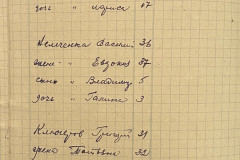 дочь " Лариса 17
Немченко Василий 36
жена " Евдокия 37
сынъ " Владимир 5
дочь " Галина 3
Григорий 31
жена Татьяна 32